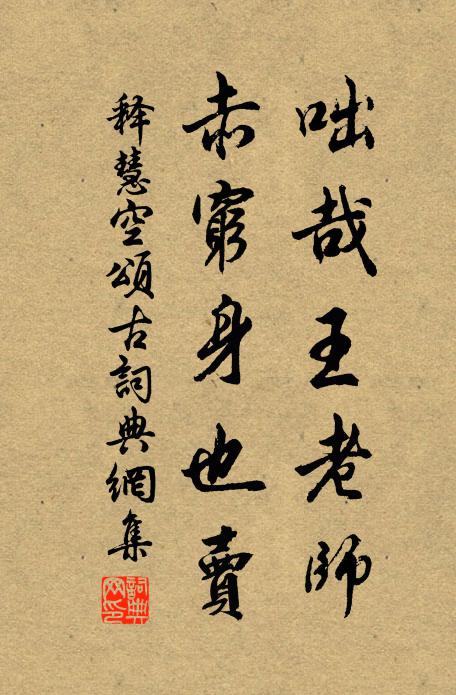 咄哉王老師
赤窮身也賣
释慧空頌古詞典網集
詞典網印